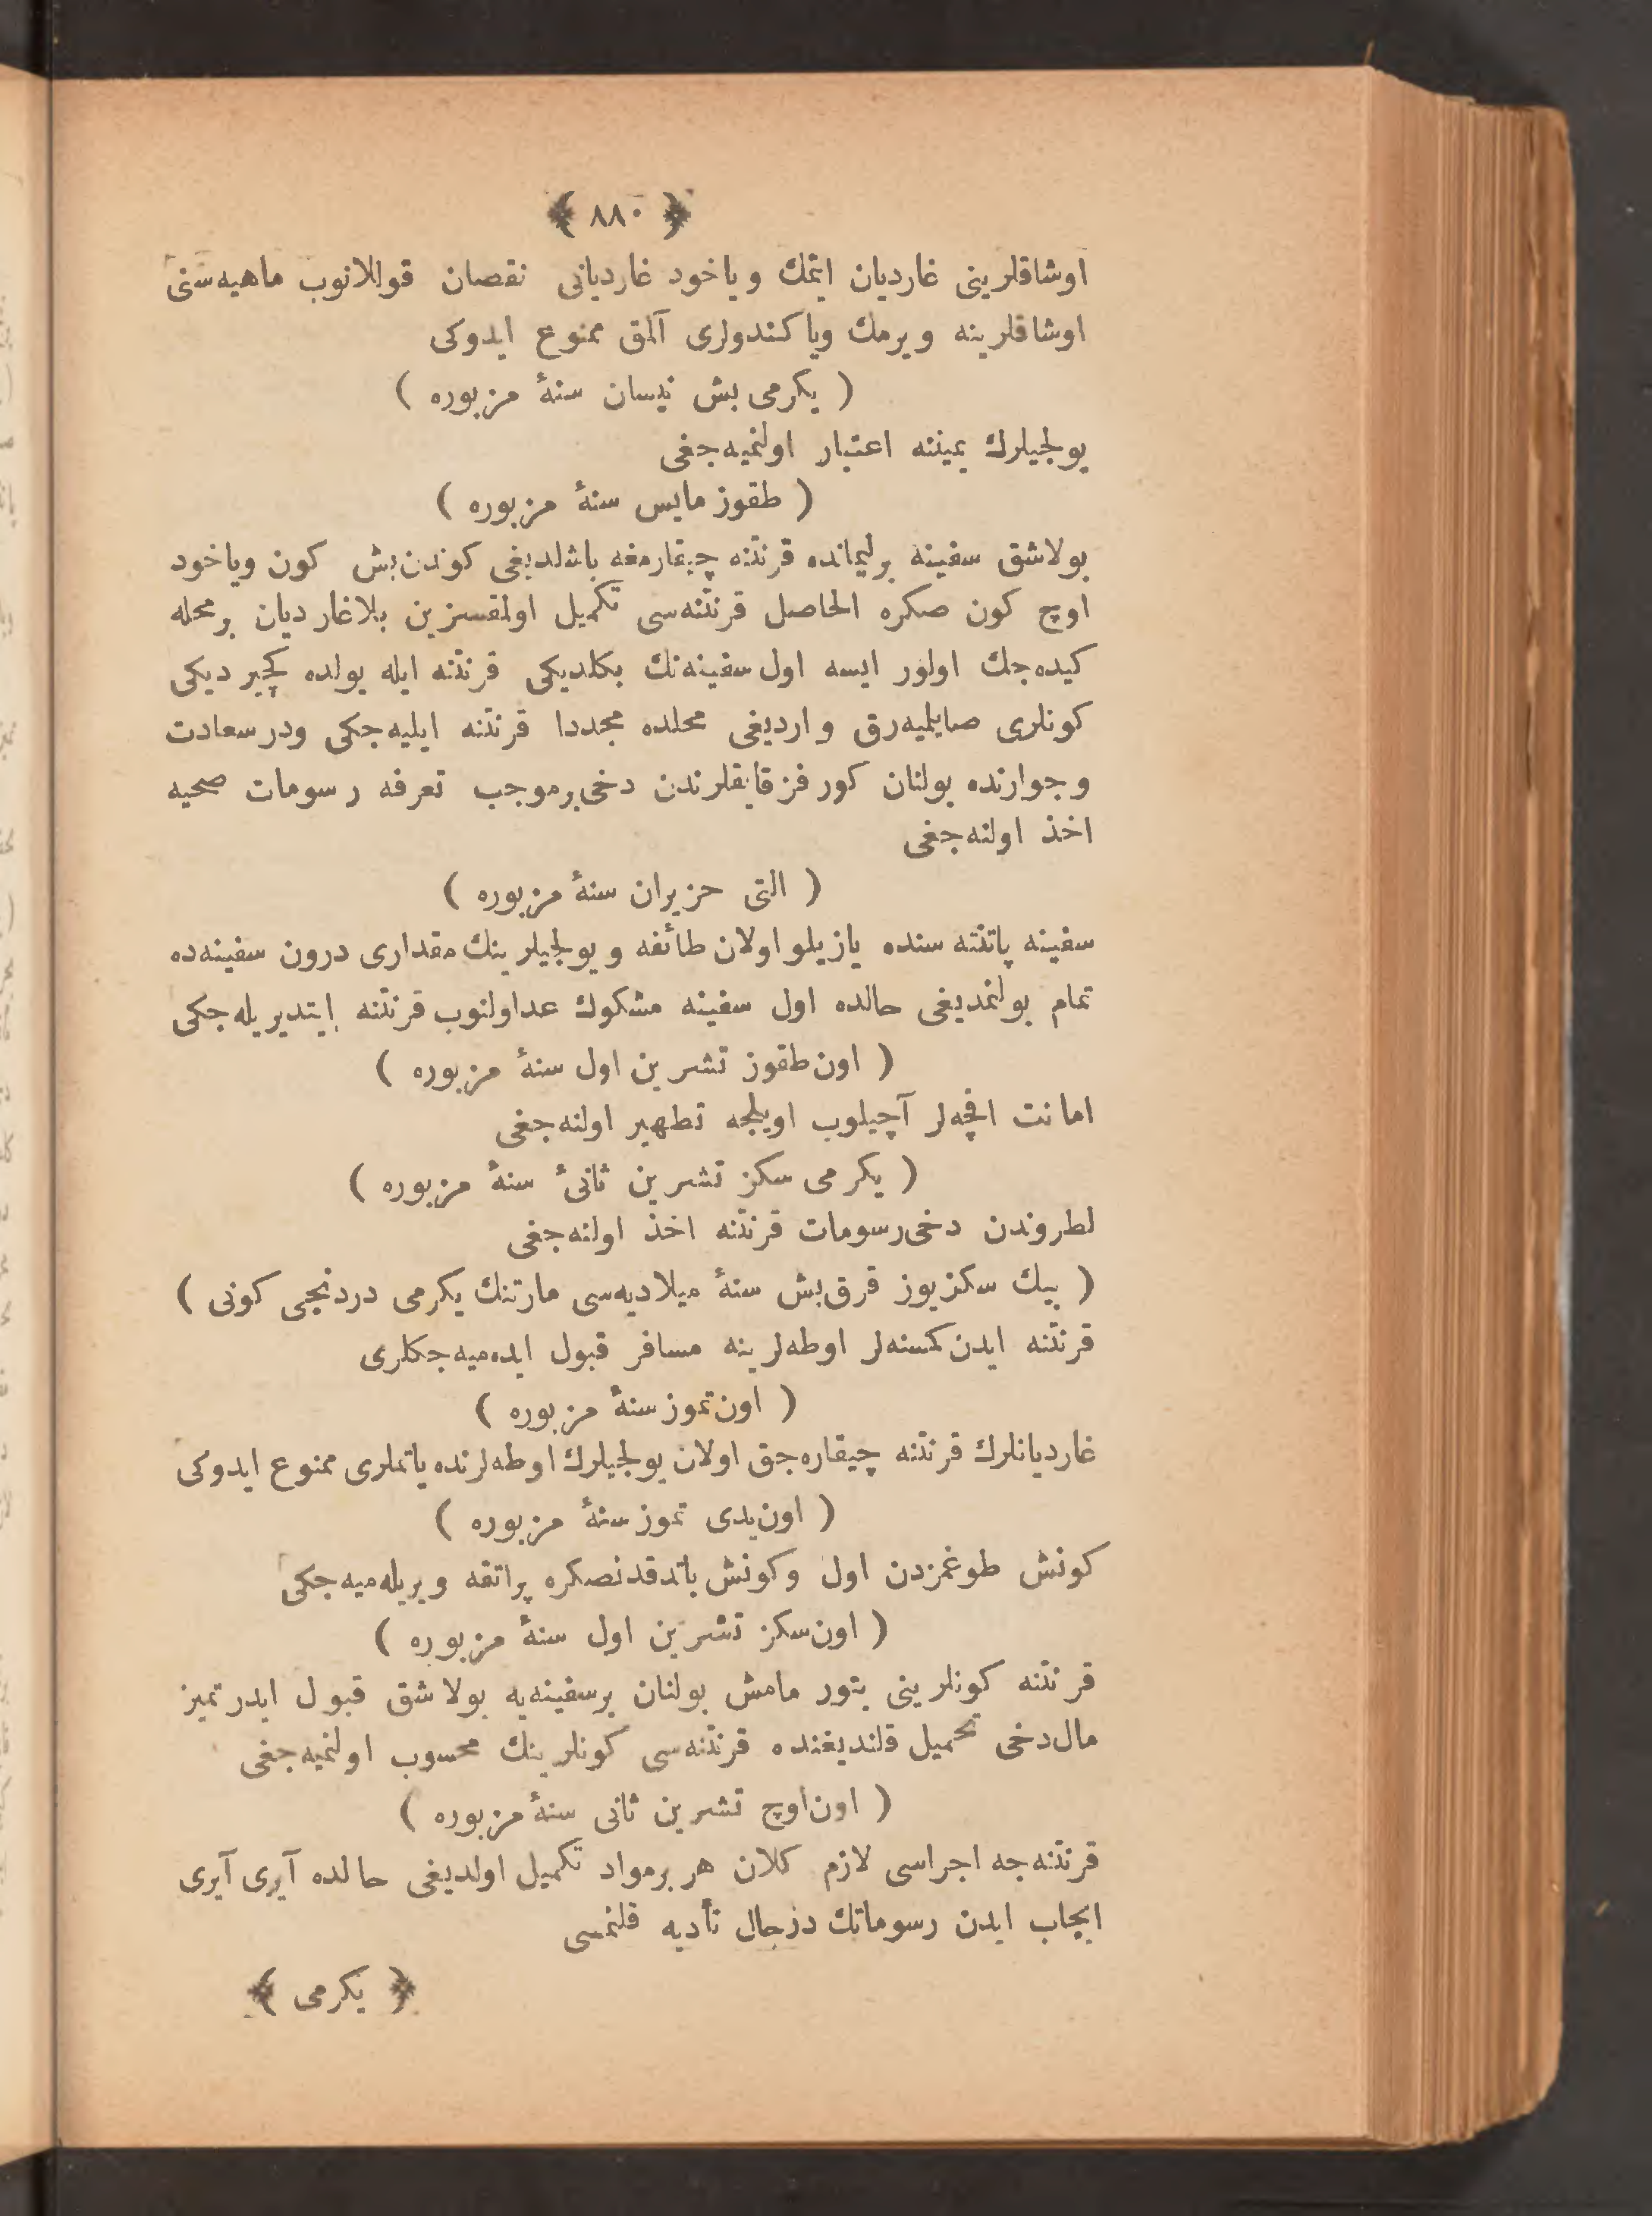 ﴿ ٨٨٠ ﴾
اوشاقلرینی غاردیان ایتمك ویاخود غاردیانی نقصان قوللانوب ماهیه‌سنی
اوشاقلرینه ویرمك ویا كندولری آلمق ممنوع ایدوكی
( یكرمی بش نیسان سنهٔ مزبوره )
یولجیلرك یمیننه اعتبار اولنمیه‌جغی
( طقوز مایس سنهٔ مزبوره )
بولاشق سفینه برلیمانده قرنتنه چیقارمغه باشلدیغی كوندن بش كون ویاخود
اوچ كون صكره الحاصل قرنتنه‌سی تكمیل اولمقسزین بلاغاردیان برمحله
كیده‌جك اولور ایسه اول سفینه‌نك بكلدیكی قرنتنه ایله یولده كچیردیكی
كونلری صایلمیه‌رق واردیغی محلده مجددا قرنتنه ایلیه‌جكی ودرسعادت
وجوارنده بولنان كورفز قایقلرندن دخی برموجب تعرفه رسومات صحیه
اخذ اولنه‌جغی
( التی حزیران سنهٔ مزبوره )
سفینه پاتنته سنده یازیلو اولان طائفه ویولجیلرینك مقداری درون سفینه‌ده
تمام بولنمدیغی حالده اول سفینه مشكوك عداولنوب قرنتنه ایتدیریله‌جكی
( اون طقوز تشرین اول سنهٔ مزبوره )
امانت اقچه‌لر آچیلوب اویلجه تطهیر اولنه‌جغی
( یكرمی سكز تشرین ثانیٔ سنهٔ مزبوره )
لطروندن دخی رسومات قرنتنه اخذ اولنه‌جغی
( بیك سكزیوز قرق بش سنهٔ میلادیه‌سی مارتنك یكرمی دردنجی كونی )
قرنتنه ایدن كمسنه‌لر اوطه‌لرینه مسافر قبول ایده‌میه‌جكلری
( اون تموز سنهٔ مزبوره )
غاردیانلرك قرنتنه چیقاره‌جق اولان یولجیلرك اوطه‌لرنده یاتملری ممنوع ایدوكی
( اون یدی تموز سنهٔ مزبوره )
كونش طوغمزدن اول وكونش باتدقدنصكره پراتقه ویریله‌میه‌جكی
( اون سكز تشرین اول سنهٔ مزبوره )
قرنتنه كونلرینی بتورمامش بولنان برسفینه‌یه بولاشق قبول ایدر تمیز
مال دخی تحمیل قلندیغنده قرنتنه‌سی كونلرینك محسوب اولنمیه‌جغی
( اون اوچ تشرین ثانی سنهٔ مزبوره )
قرنتنه‌جه اجراسی لازم كلان هر برمواد تكمیل اولدیغی حالده آیری آیری
ایجاب ایدن رسوماتك درحال تأدیه قلنمسی
﴿ یكرمی ﴾